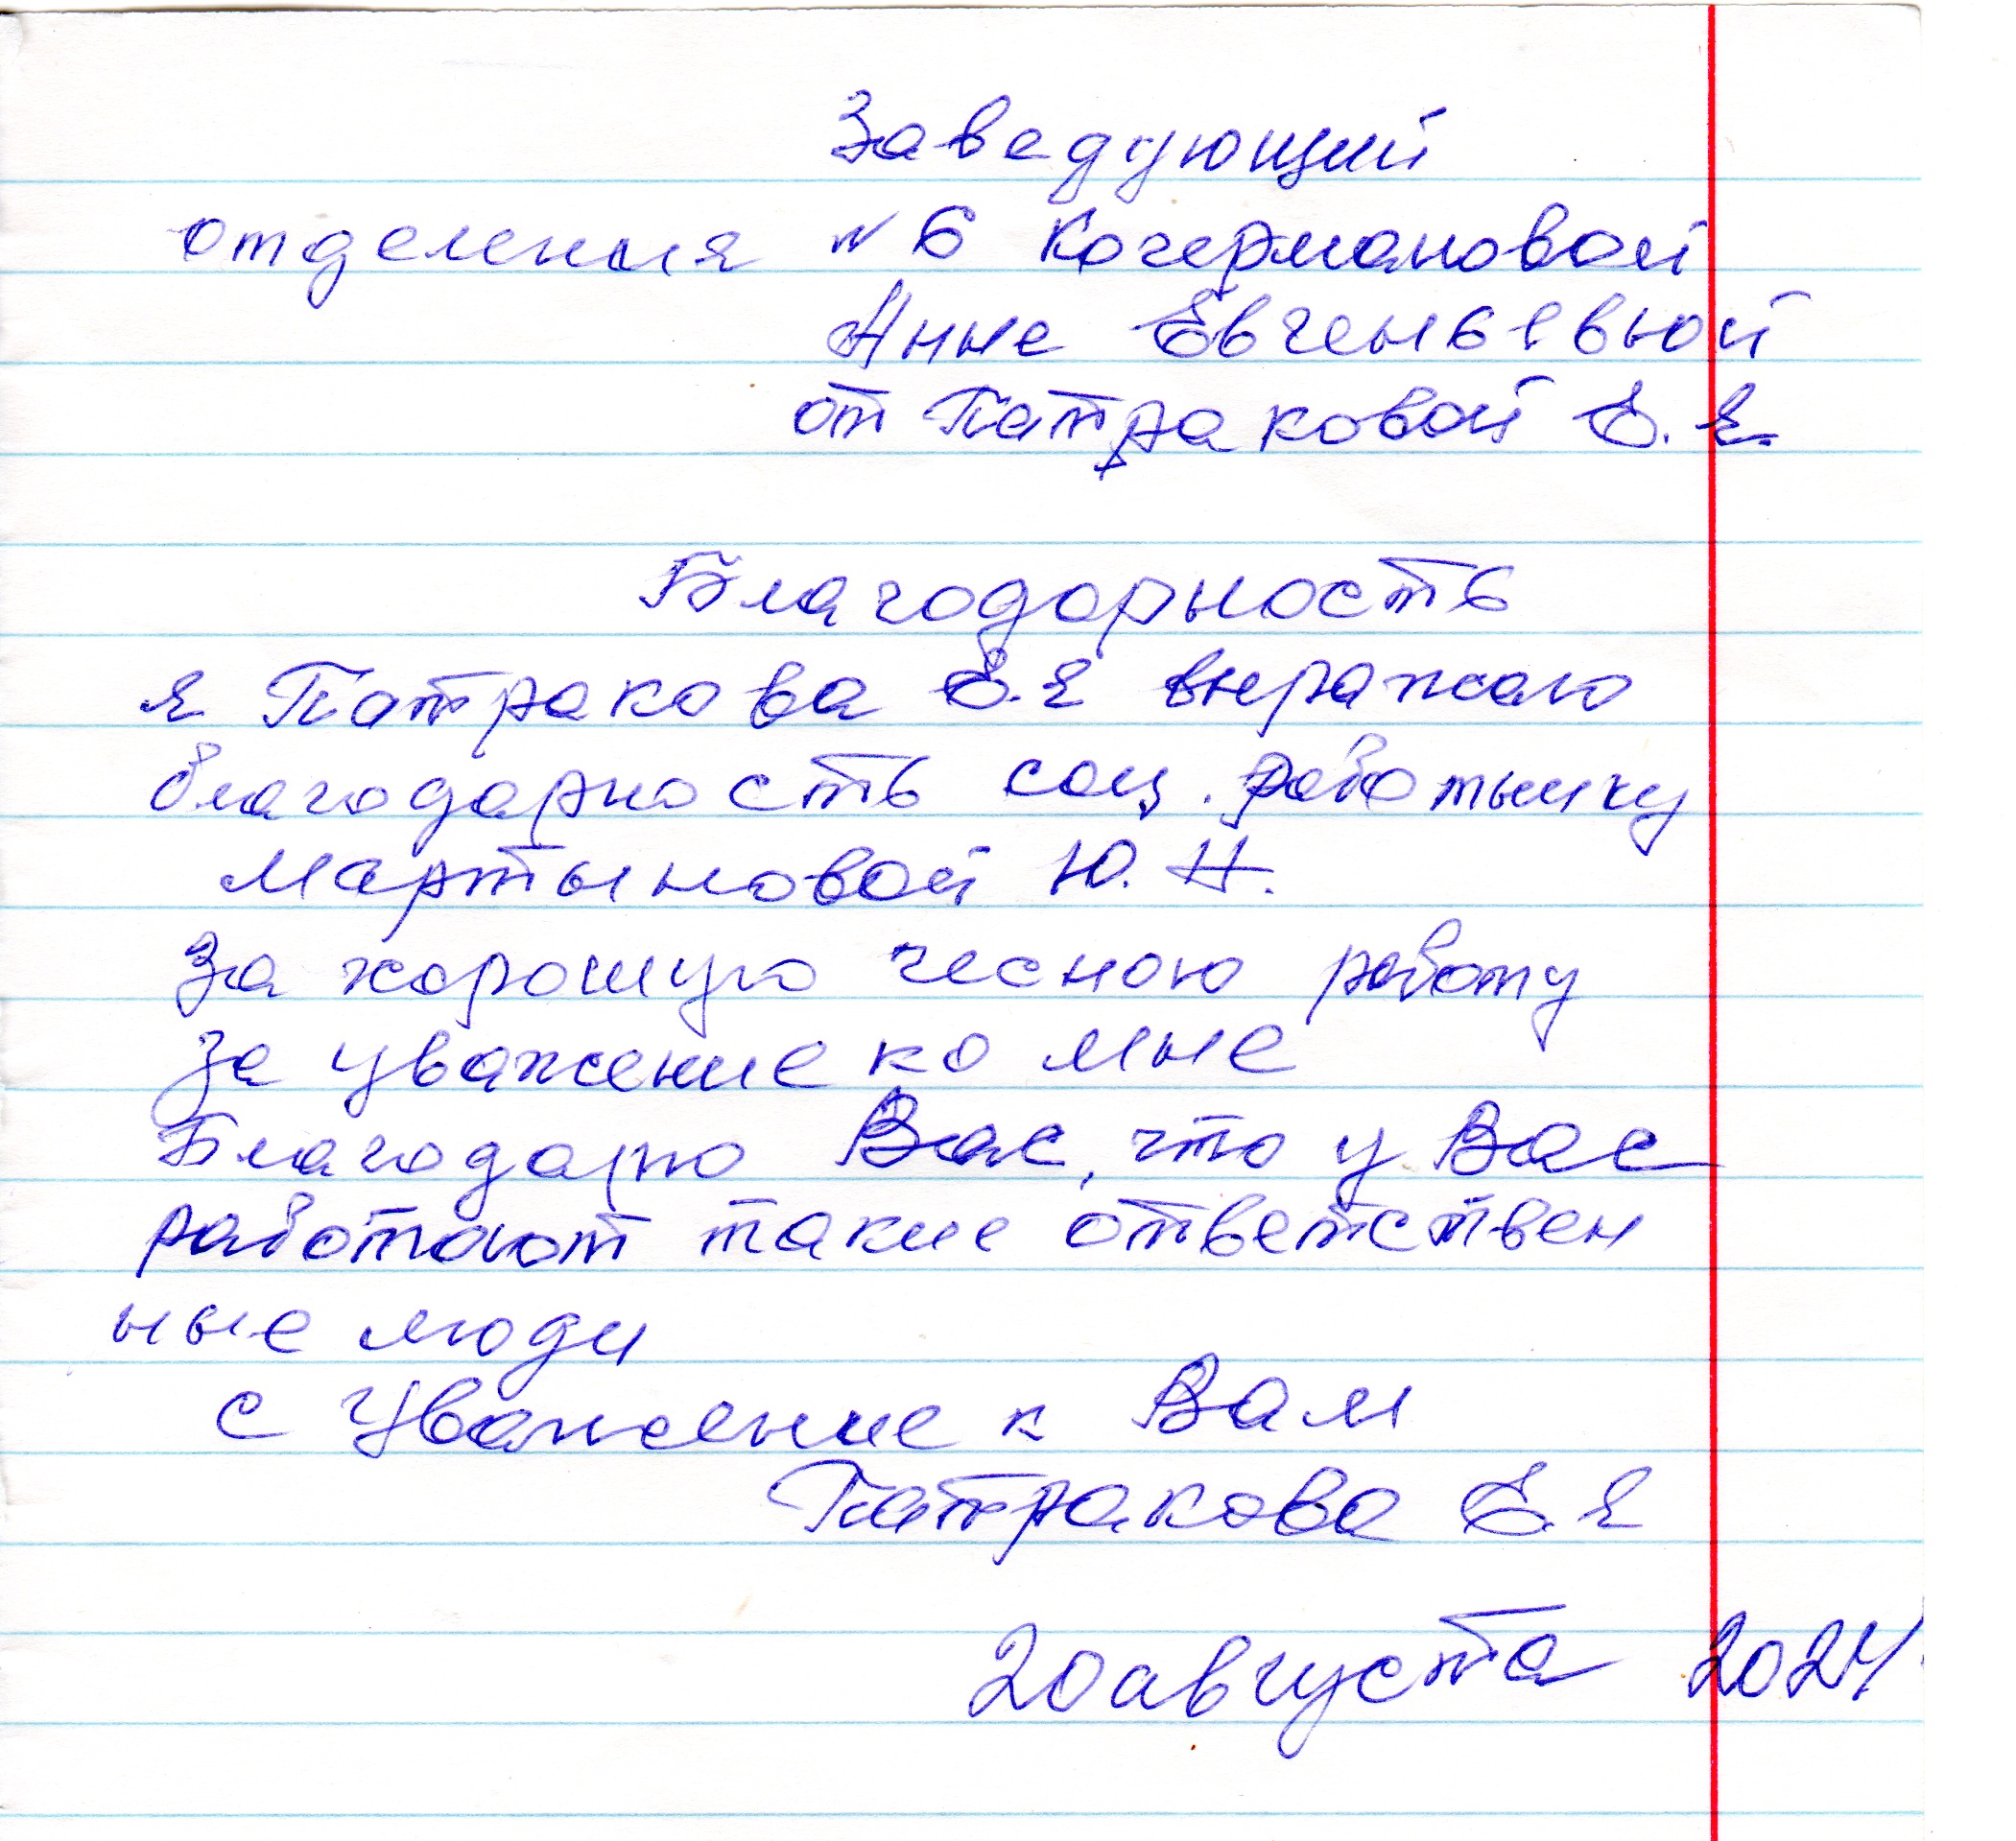 Заведующий
отделения № 6 Кочермановой
Анне Евгеньевной
от Патраковой Е. Я.
Благодорность
я Патракова Е. Я выражаю
благодарность соц. работнику
Мартыновой Ю. Н.
За хорошую чесною работу
за уважение ко мне
Благодарю Вас, что у Вас
работают такие ответствен
ные люди
с Уважение к Вам
Патракова Е. Я
20 августа 2024